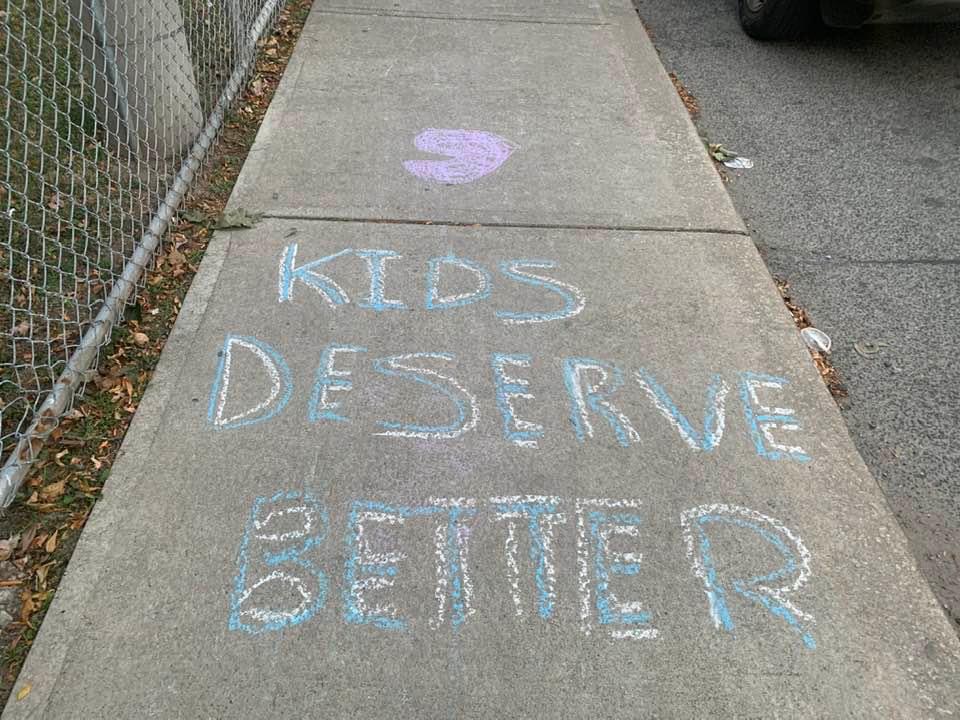 KIDS
DESERVE
BETTER